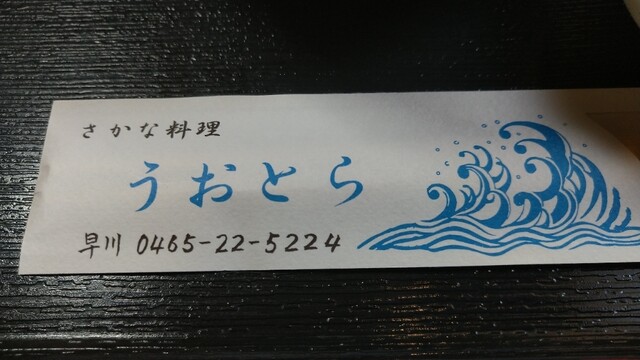 さかな料理
うおとら
早川 0465-22-5224